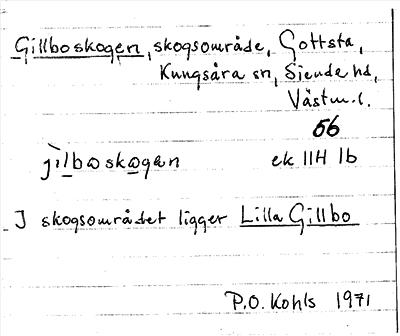 Gillboskogen, skogsområde, Gottsta,
Kungsåra sn, Siende hd,
Västm. l.
56
jìlboskogæn ek 11H 1b
I skogsområdet ligger Lilla Gillbo
P.O. Kohls 1971